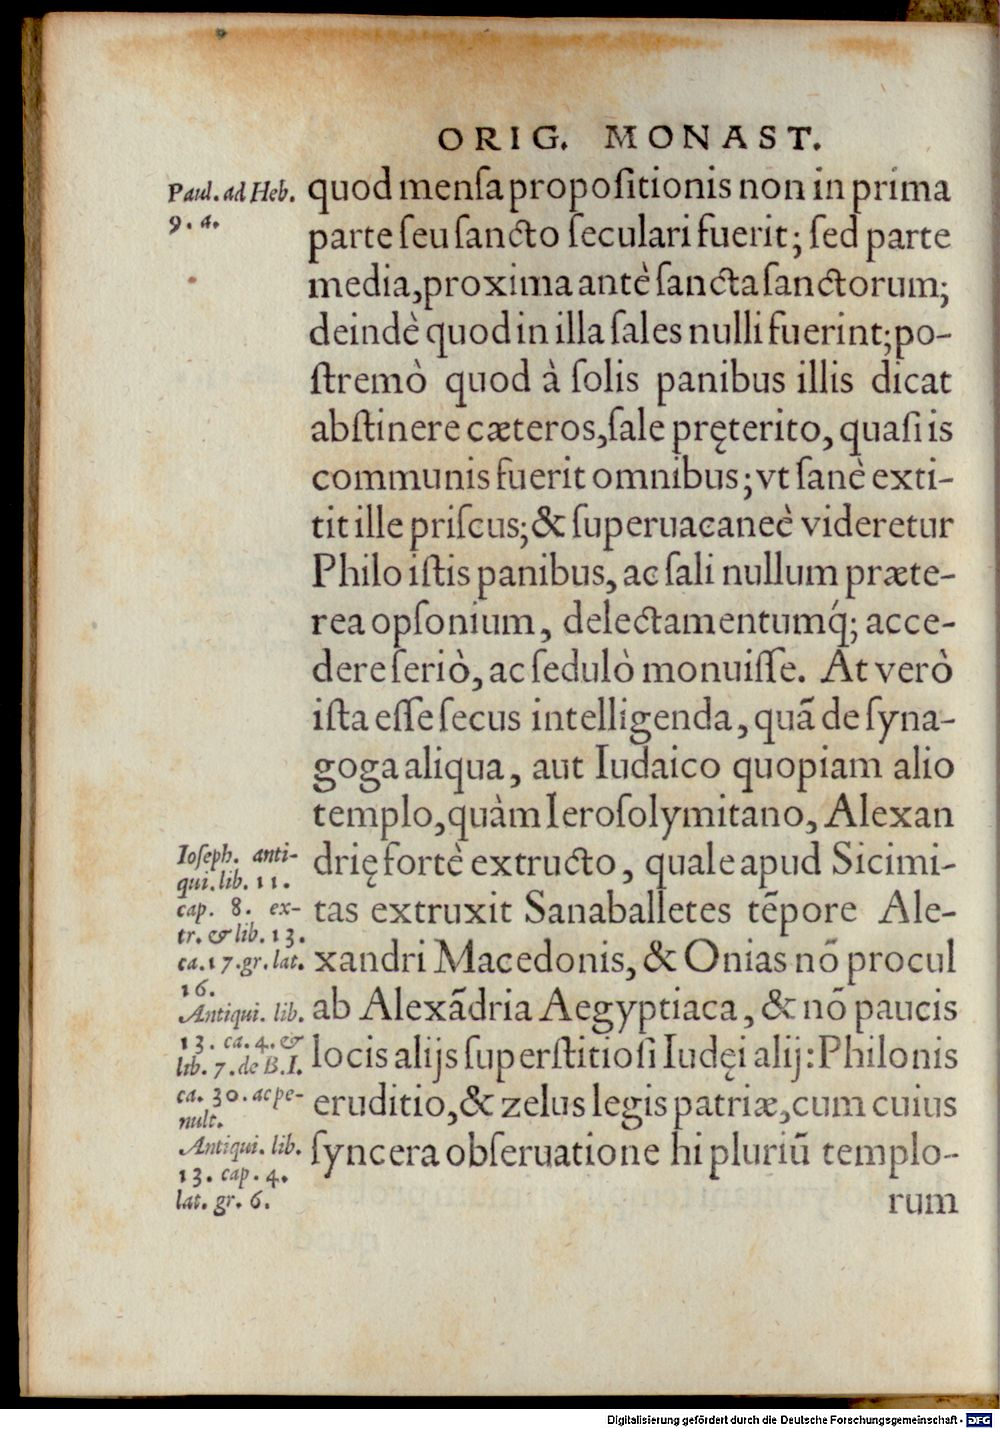 ORIG. MONAST.
Paul. ad Heb.
9. 4.
quod menſa propoſitionis non in prima
parte ſeu ſancto ſeculari fuerit; ſed parte
media, proxima antè ſancta ſanctorum;
deindè quod in illa ſales nulli fuerint; po-
ſtremò quod à ſolis panibus illis dicat
abſtinere cæteros, ſale pręterito, quaſi is
communis fuerit omnibus; vt ſanè exti-
tit ille priſcus; & ſuperuacaneè videretur
Philo iſtis panibus, ac ſali nullum præte-
rea opſonium, delectamentumq́; acce-
dere ſeriò, ac ſedulò monuiſſe. At verò
iſta eſſe ſecus intelligenda, quã de ſyna-
goga aliqua, aut Iudaico quopiam alio
templo, quàm Ieroſolymitano, Alexan
drię fortè extructo, quale apud Sicimi-
tas extruxit Sanaballetes tẽpore Ale-
xandri Macedonis, & Onias nõ procul
ab Alexãdria Aegyptiaca, & nõ paucis
locis alijs ſuperſtitioſi Iudęi alij: Philonis
eruditio, & zelus legis patriæ, cum cuius
ſyncera obſeruatione hi pluriũ templo-
rum
Ioſeph. anti-
qui. lib. 11.
cap. 8. ex-
tr. & lib. 13.
ca. 17. gr. lat.
16.
Antiqui. lib.
13. ca. 4. &
lib. 7. de B. I.
ca. 30. ac pe-
nult.
Antiqui. lib.
13. cap. 4.
lat. gr. 6.
Digitalisierung gefördert durch die Deutsche Forschungsgemeinschaft - DFG